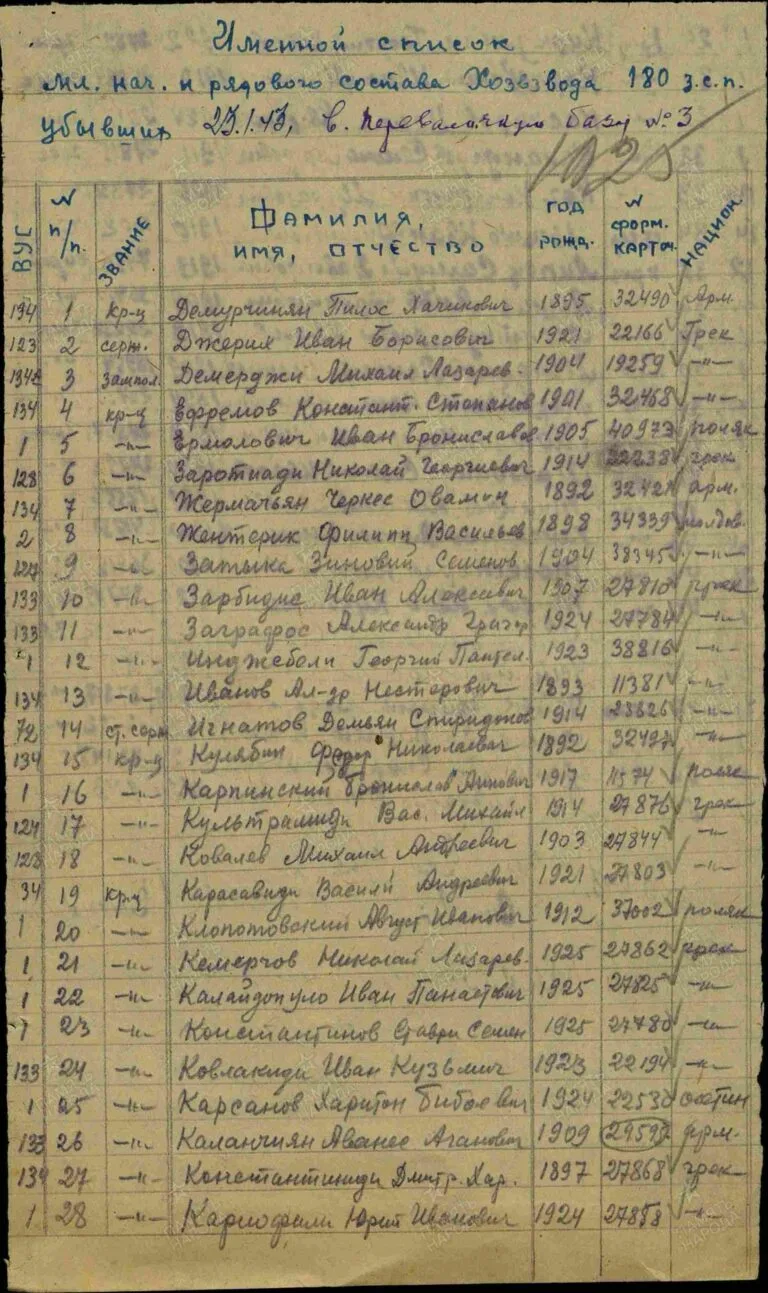 Именной список
мл. нач. и рядового состава Хозвзвода 180 з.с.п.
убывших 25.1.43, в. Перевалочную базу № 3
ВУС № п/п. ЗВАНИЕ ФАМИЛИЯ, ИМЯ, ОТЧЕСТВО ГОД РОЖД. № ФОРМ. КАРТОЧ. НАЦИОН.
194 1 кр-ц Демурчинян Пилос Хачикович 1895 32490 Арм
123 2 серж. Джерих Иван Борисович 1921 22166 Грек
134 3 зампол. Демерджи Михаил Лазарев. 1904 19259 -"-
134 4 кр-ц Ефремов Констант. Степанов 1901 32468 -"-
1 5 -"- Ермолович Иван Брониславов 1905 40973 поляк
128 6 -"- Заротиади Николай Георгиевич 1914 22238 грек
134 7 -"- Жермачьян Черкес Овамин 1892 32421 арм.
2 8 -"- Жентерик Филипп Васильев 1898 34339 молдов.
9 -"- Затыка Зиновий Семенов 1904 38345 -"-
133 10 -"- Зарбидис Иван Алексеевич 1907 27810 грек
133 11 -"- Заграфос Александр Григор 1924 27784 -"-
1 12 -"- Инджеболи Георгий Пантел. 1923 38816 -"-
134 13 -"- Иванов Ал-др Нестерович 1893 11381 -"-
72 14 ст. серж Игнатов Демьян Спиридонов 1914 23826 -"-
134 15 кр-ц Кулябин Федор Николаевич 1892 32497 -"-
1 16 -"- Карпинский Бронислав Антович 1917 11574 поляк
124 17 -"- Культрамиди Вас. Михайл 1914 27876 грек
128 18 -"- Ковалев Михаил Андреевич 1903 27844 -"-
34 19 кр-ц Карасавиди Василий Андреевич 1921 27803 -"-
1 20 -"- Клопотовский Август Иванович 1912 37002 поляк
1 21 -"- Кемерчов Николай Лазарев. 1925 27862 грек
1 22 -"- Калайдопуло Иван Панаетович 1925 27825 -"-
1 23 -"- Константинов Ставри Семен 1925 27780 -"-
133 24 -"- Ковлакиди Иван Кузьмич 1923 22194 -"-
1 25 -"- Карсанов Харитон Бибоевич 1924 22530 осетин
133 26 -"- Каланчиян Аванес Аганович 1909 29599 арм.
134 27 -"- Константиниди Дмитр. Хар. 1897 27868 грек
1 28 -"- Кариофили Юрий Иванович 1924 27858 -"-